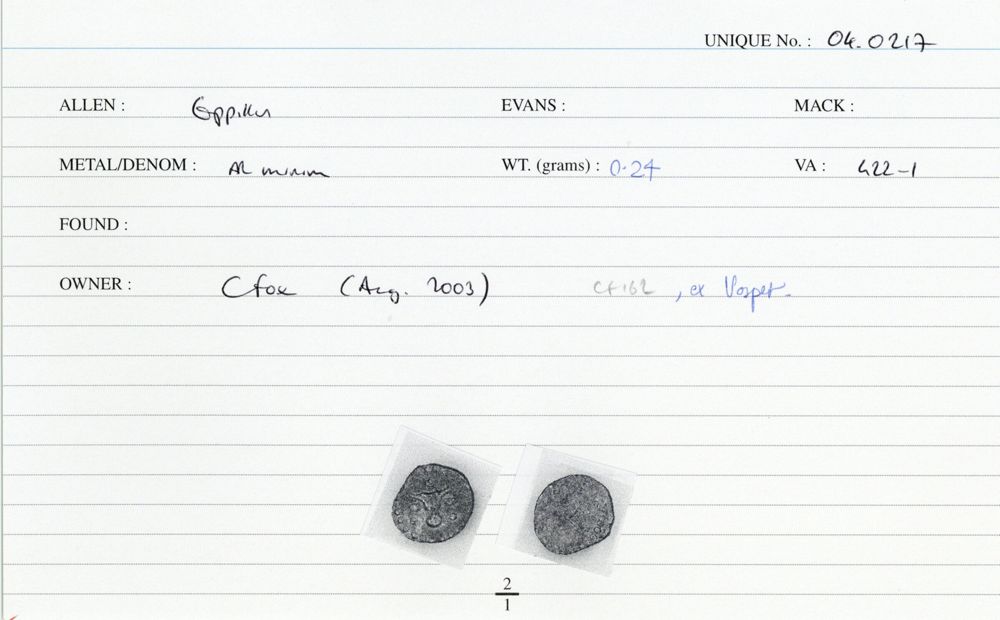 UNIQUE No. : 04.0217
ALLEN : Eppillus EVANS : MACK :
METAL/DENOM : AR minim WT. (grams) : 0.24 VA : 422-1
FOUND :
OWNER : C fox (Aug. 2003) CF162 , ex Vosper.
2
1